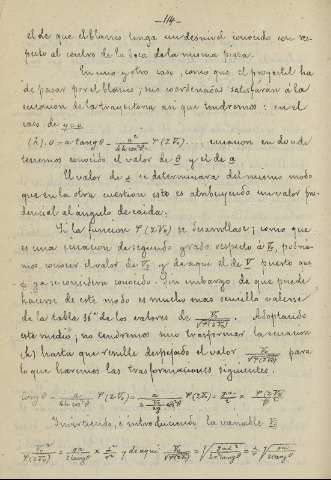 —114—
el de que el blanco tenga un desnivel conocido con res-
pecto al centro de la boca de la misma pieza.
En uno y otro caso, como que el proyectil ha
de pasar por el blanco, sus coordenadas satisfarán á la
ecuacion de la trayectoria asi que tendremos: en el
caso de y=o
ecuacion en donde
tenemos conocido el valor de θ y el de a
El valor de se determinará del mismo modo
que en la otra cuestion esto es atribuyendo un valor pru-
dencial al ángulo de caida.
Si la funcion se desarrollase, como que
es una ecuacion de segundo grado respecto á podria-
mos conocer el valor de y de aqui el de V puesto que
ya se considera conocido. Sin embargo de que puede
hacerse de este modo es mucho mas sencillo valerse
de la tabla de los valores de Adoptando
este medio, no tendremos sino trasformar la ecuacion
hasta que resulte despejado el valor para
lo que haremos las trasformaciones siguientes.
Invirtiendo, é introduciendo la variable
y de aqui